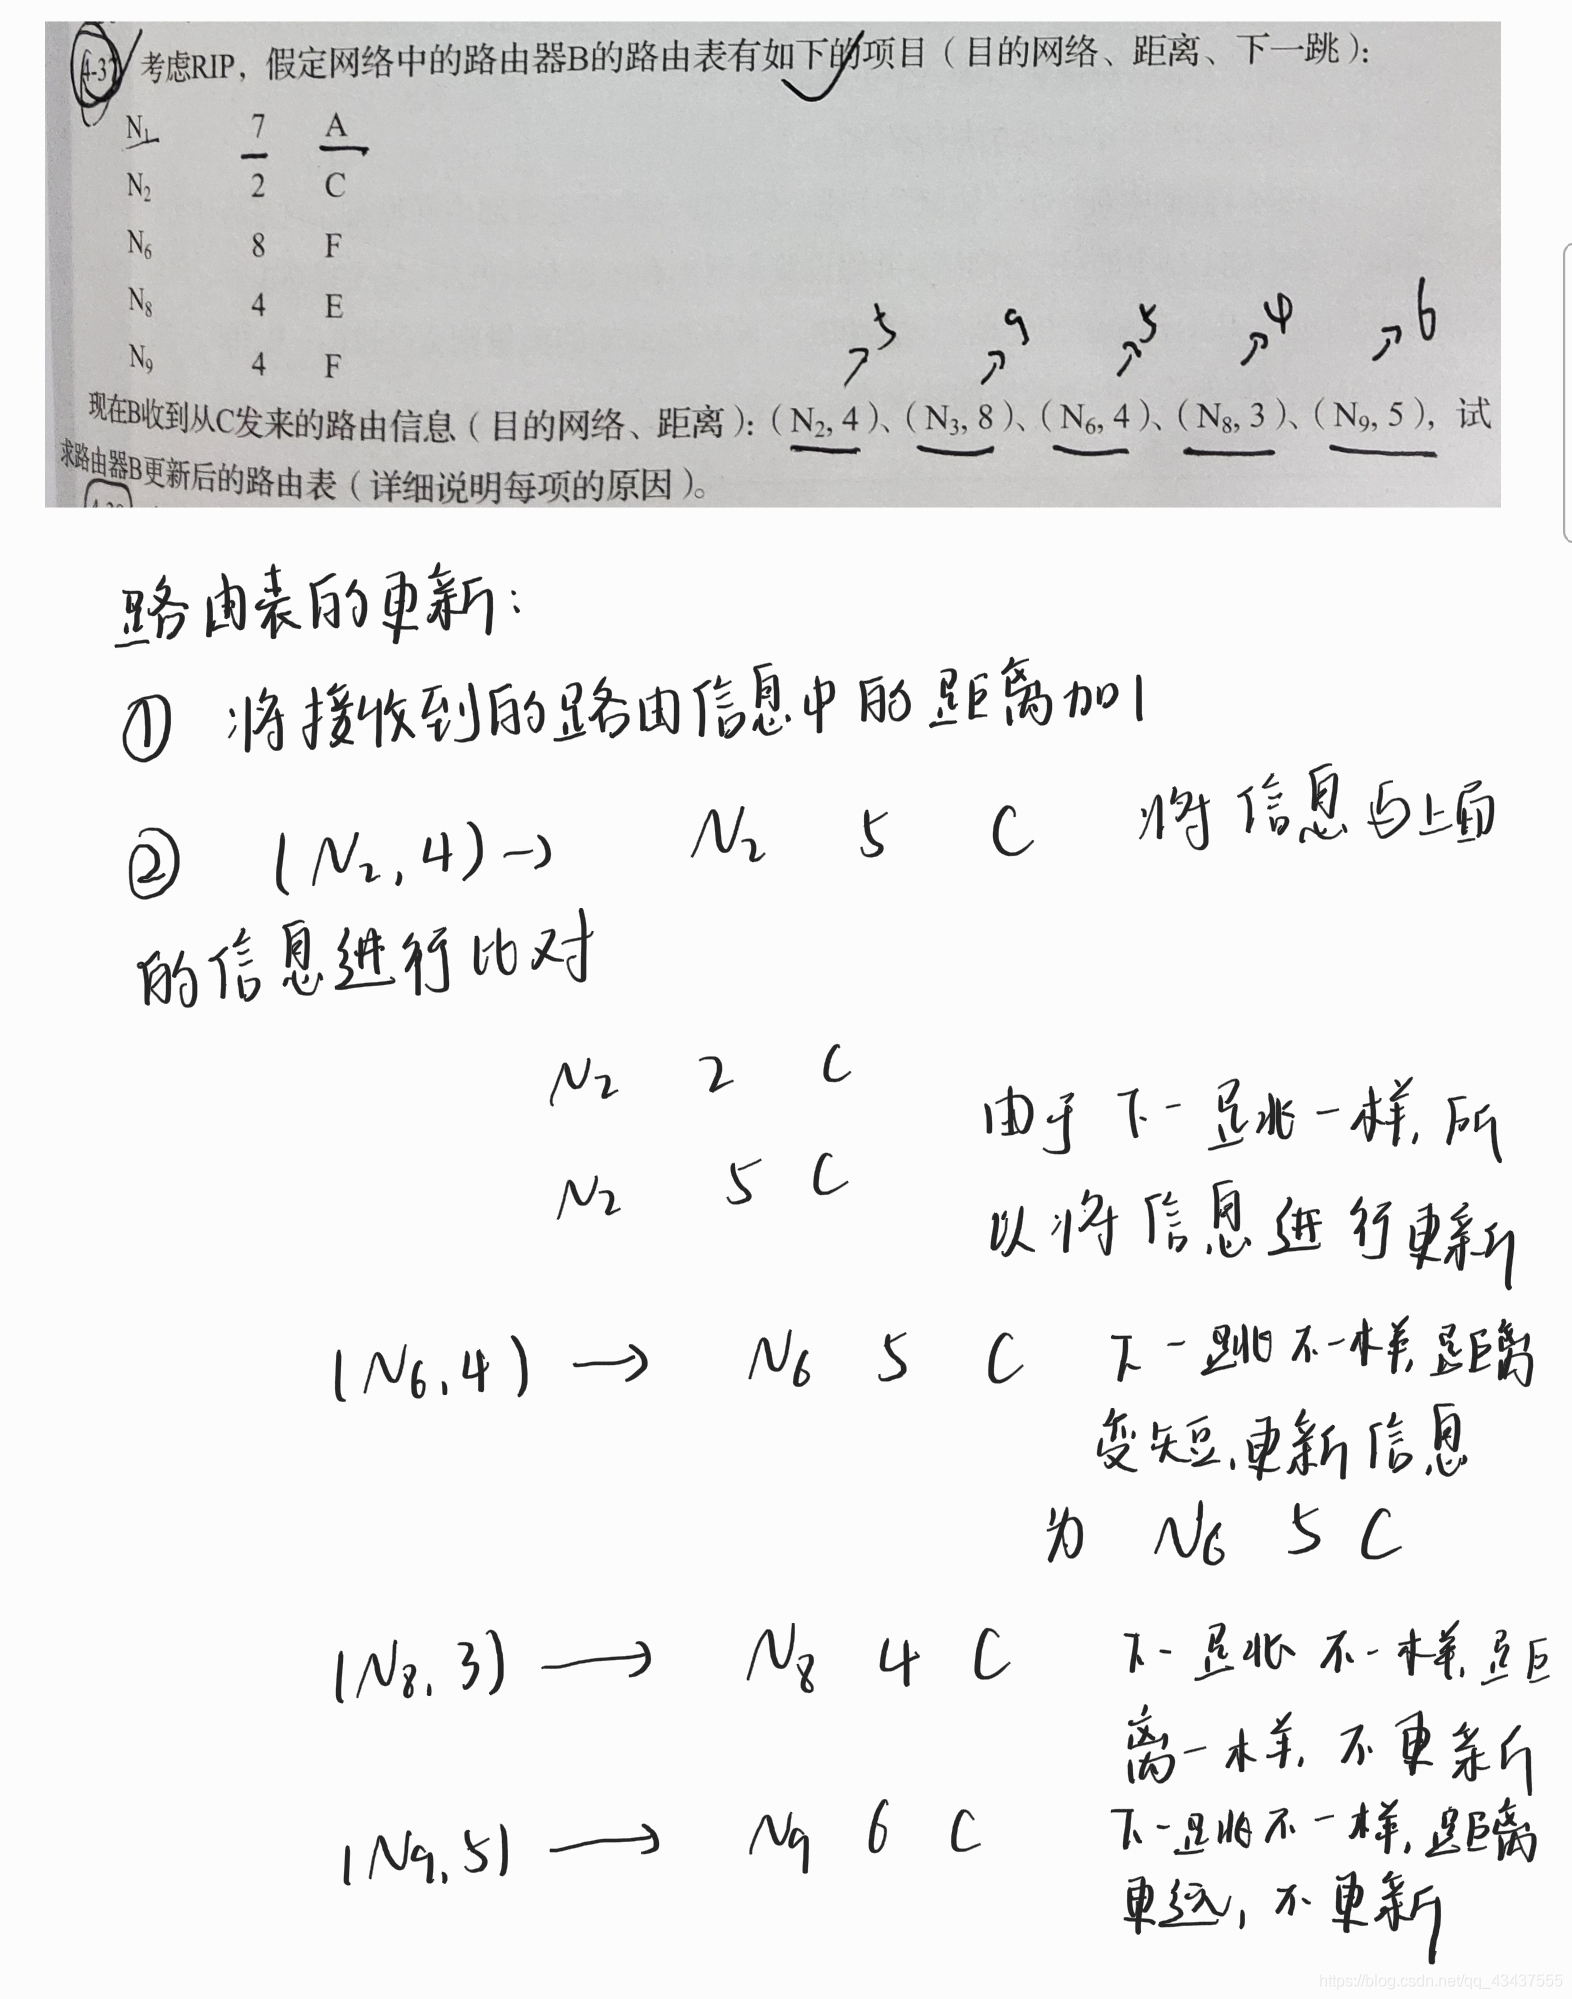 4-37 考虑RIP，假定网络中的路由器B的路由表有如下的项目（目的网络、距离、下一跳）：
N₁ 7 A
N₂ 2 C
N₆ 8 F
N₈ 4 E
N₉ 4 F
5 9 5 4 6
现在B收到从C发来的路由信息（目的网络、距离）：（N₂, 4）、（N₃, 8）、（N₆, 4）、（N₈, 3）、（N₉, 5），试
求路由器B更新后的路由表（详细说明每项的原因）。
路由表的更新：
① 将接收到的路由信息中的距离加1
② (N₂, 4) → N₂ 5 C 将信息与上面
的信息进行比对
N₂ 2 C
N₂ 5 C
由于下一跳一样, 所
以将信息进行更新
(N₆, 4) → N₆ 5 C 下一跳不一样, 距离
变短, 更新信息
为 N₆ 5 C
(N₈, 3) → N₈ 4 C 下一跳不一样, 距
离一样, 不更新
(N₉, 5) → N₉ 6 C 下一跳不一样, 距离
更远, 不更新
https://blog.csdn.net/qq_43437555